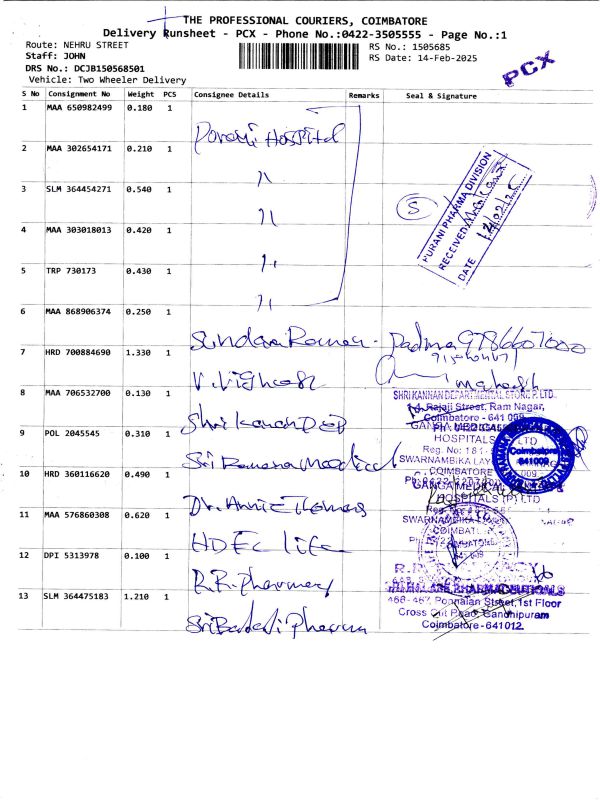 THE PROFESSIONAL COURIERS, COIMBATORE
Delivery Runsheet - PCX - Phone No.:0422-3505555 - Page No.:1
Route: NEHRU STREET
RS No.: 1505685
Staff: JOHN
RS Date: 14-Feb-2025
DRS No.: DCJB150568501
Vehicle: Two Wheeler Delivery
PCX
S No Consignment No Weight PCS Consignee Details Remarks Seal & Signature
1 MAA 650982499 0.180 1
Purani Hospital
2 MAA 302654171 0.210 1
3 SLM 364454271 0.540 1
4 MAA 303018013 0.420 1
5 TRP 730173 0.430 1
S
PURANI PHARMA DIVISION
RECEIVED
DATE
6 MAA 868906374 0.250 1
Sundara Raman - Padma 9786607000
7 HRD 700884690 1.330 1
V. Vighesh
mahesh
8 MAA 706532700 0.130 1
Shri Kanan Dep
SHRI KANNAN DEPARTMENTAL STORE P LTD.
Rajaji Street, Ram Nagar,
Coimbatore - 641 009
9 POL 2045545 0.310 1
Sri Ramana Medical
GANGA MEDICAL
HOSPITALS
LTD
Reg. No: 181
SWARNAMBIKA LAY
COIMBATORE
Coimbatore
641009
10 HRD 360116620 0.490 1
Dr. Annie Thomas
GANGA MEDICAL
HOSPITALS (P) LTD
SWARNAMBIKA
11 MAA 576860308 0.620 1
HDFC life
12 DPI 5313978 0.100 1
R.R. Pharmacy
13 SLM 364475183 1.210 1
Sri Badari Pharma
466-467, Ponnaian Street, 1st Floor
Cross Cut Road, Gandhipuram
Coimbatore - 641012.